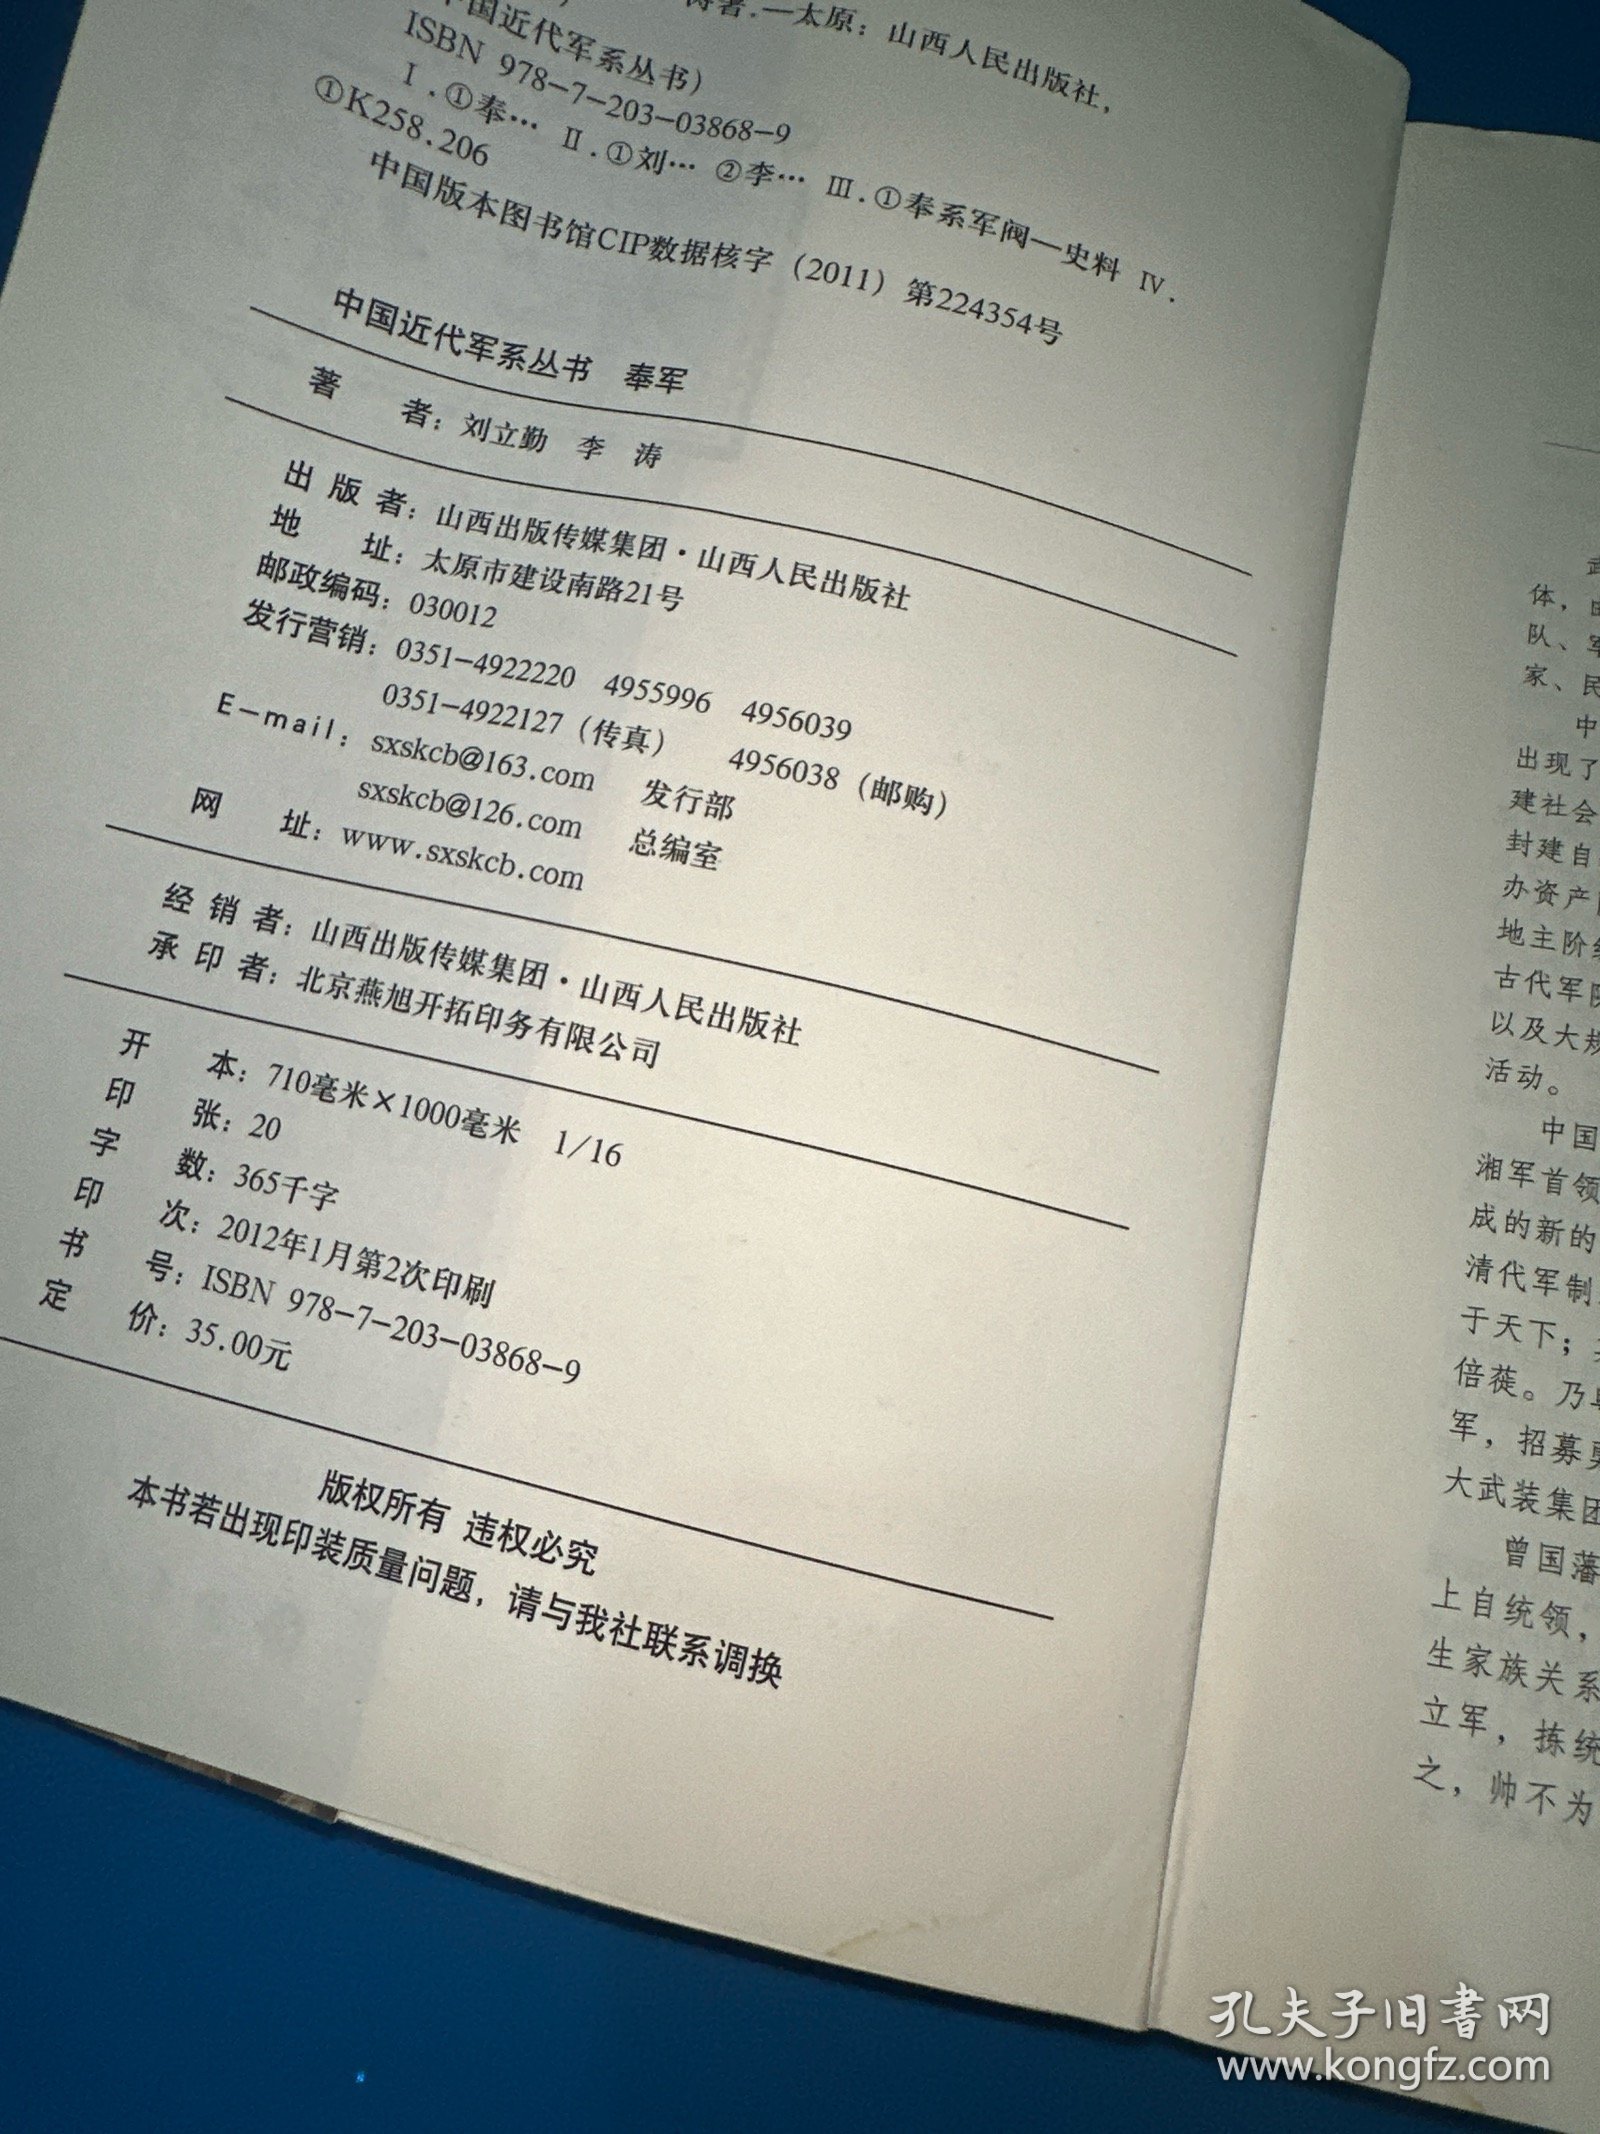 涛著.—太原：山西人民出版社，
中国近代军系丛书）
ISBN 978-7-203-03868-9
Ⅰ.①奉… Ⅱ.①刘… ②李… Ⅲ.①奉系军阀—史料 Ⅳ.
①K258.206
中国版本图书馆CIP数据核字（2011）第224354号
中国近代军系丛书 奉军
著 者：刘立勤 李 涛
出 版 者：山西出版传媒集团·山西人民出版社
地 址：太原市建设南路21号
邮政编码：030012
发行营销：0351-4922220 4955996 4956039
0351-4922127（传真） 4956038（邮购）
E-mail：sxskcb@163.com 发行部
sxskcb@126.com 总编室
网 址：www.sxskcb.com
经 销 者：山西出版传媒集团·山西人民出版社
承 印 者：北京燕旭开拓印务有限公司
开 本：710毫米×1000毫米 1/16
印 张：20
字 数：365千字
印 次：2012年1月第2次印刷
书 号：ISBN 978-7-203-03868-9
定 价：35.00元
版权所有 违权必究
本书若出现印装质量问题，请与我社联系调换
体，
队、
家、民
中
出现了
建社会
封建自
办资产
地主阶
古代军队
以及大规
活动。
中国
湘军首领
成的新的
清代军制
于天下；
倍蓰。乃
军，招募
大武装集团
曾国藩
上自统领，
生家族关系
立军，拣统
之，帅不为
孔夫子旧书网
www.kongfz.com